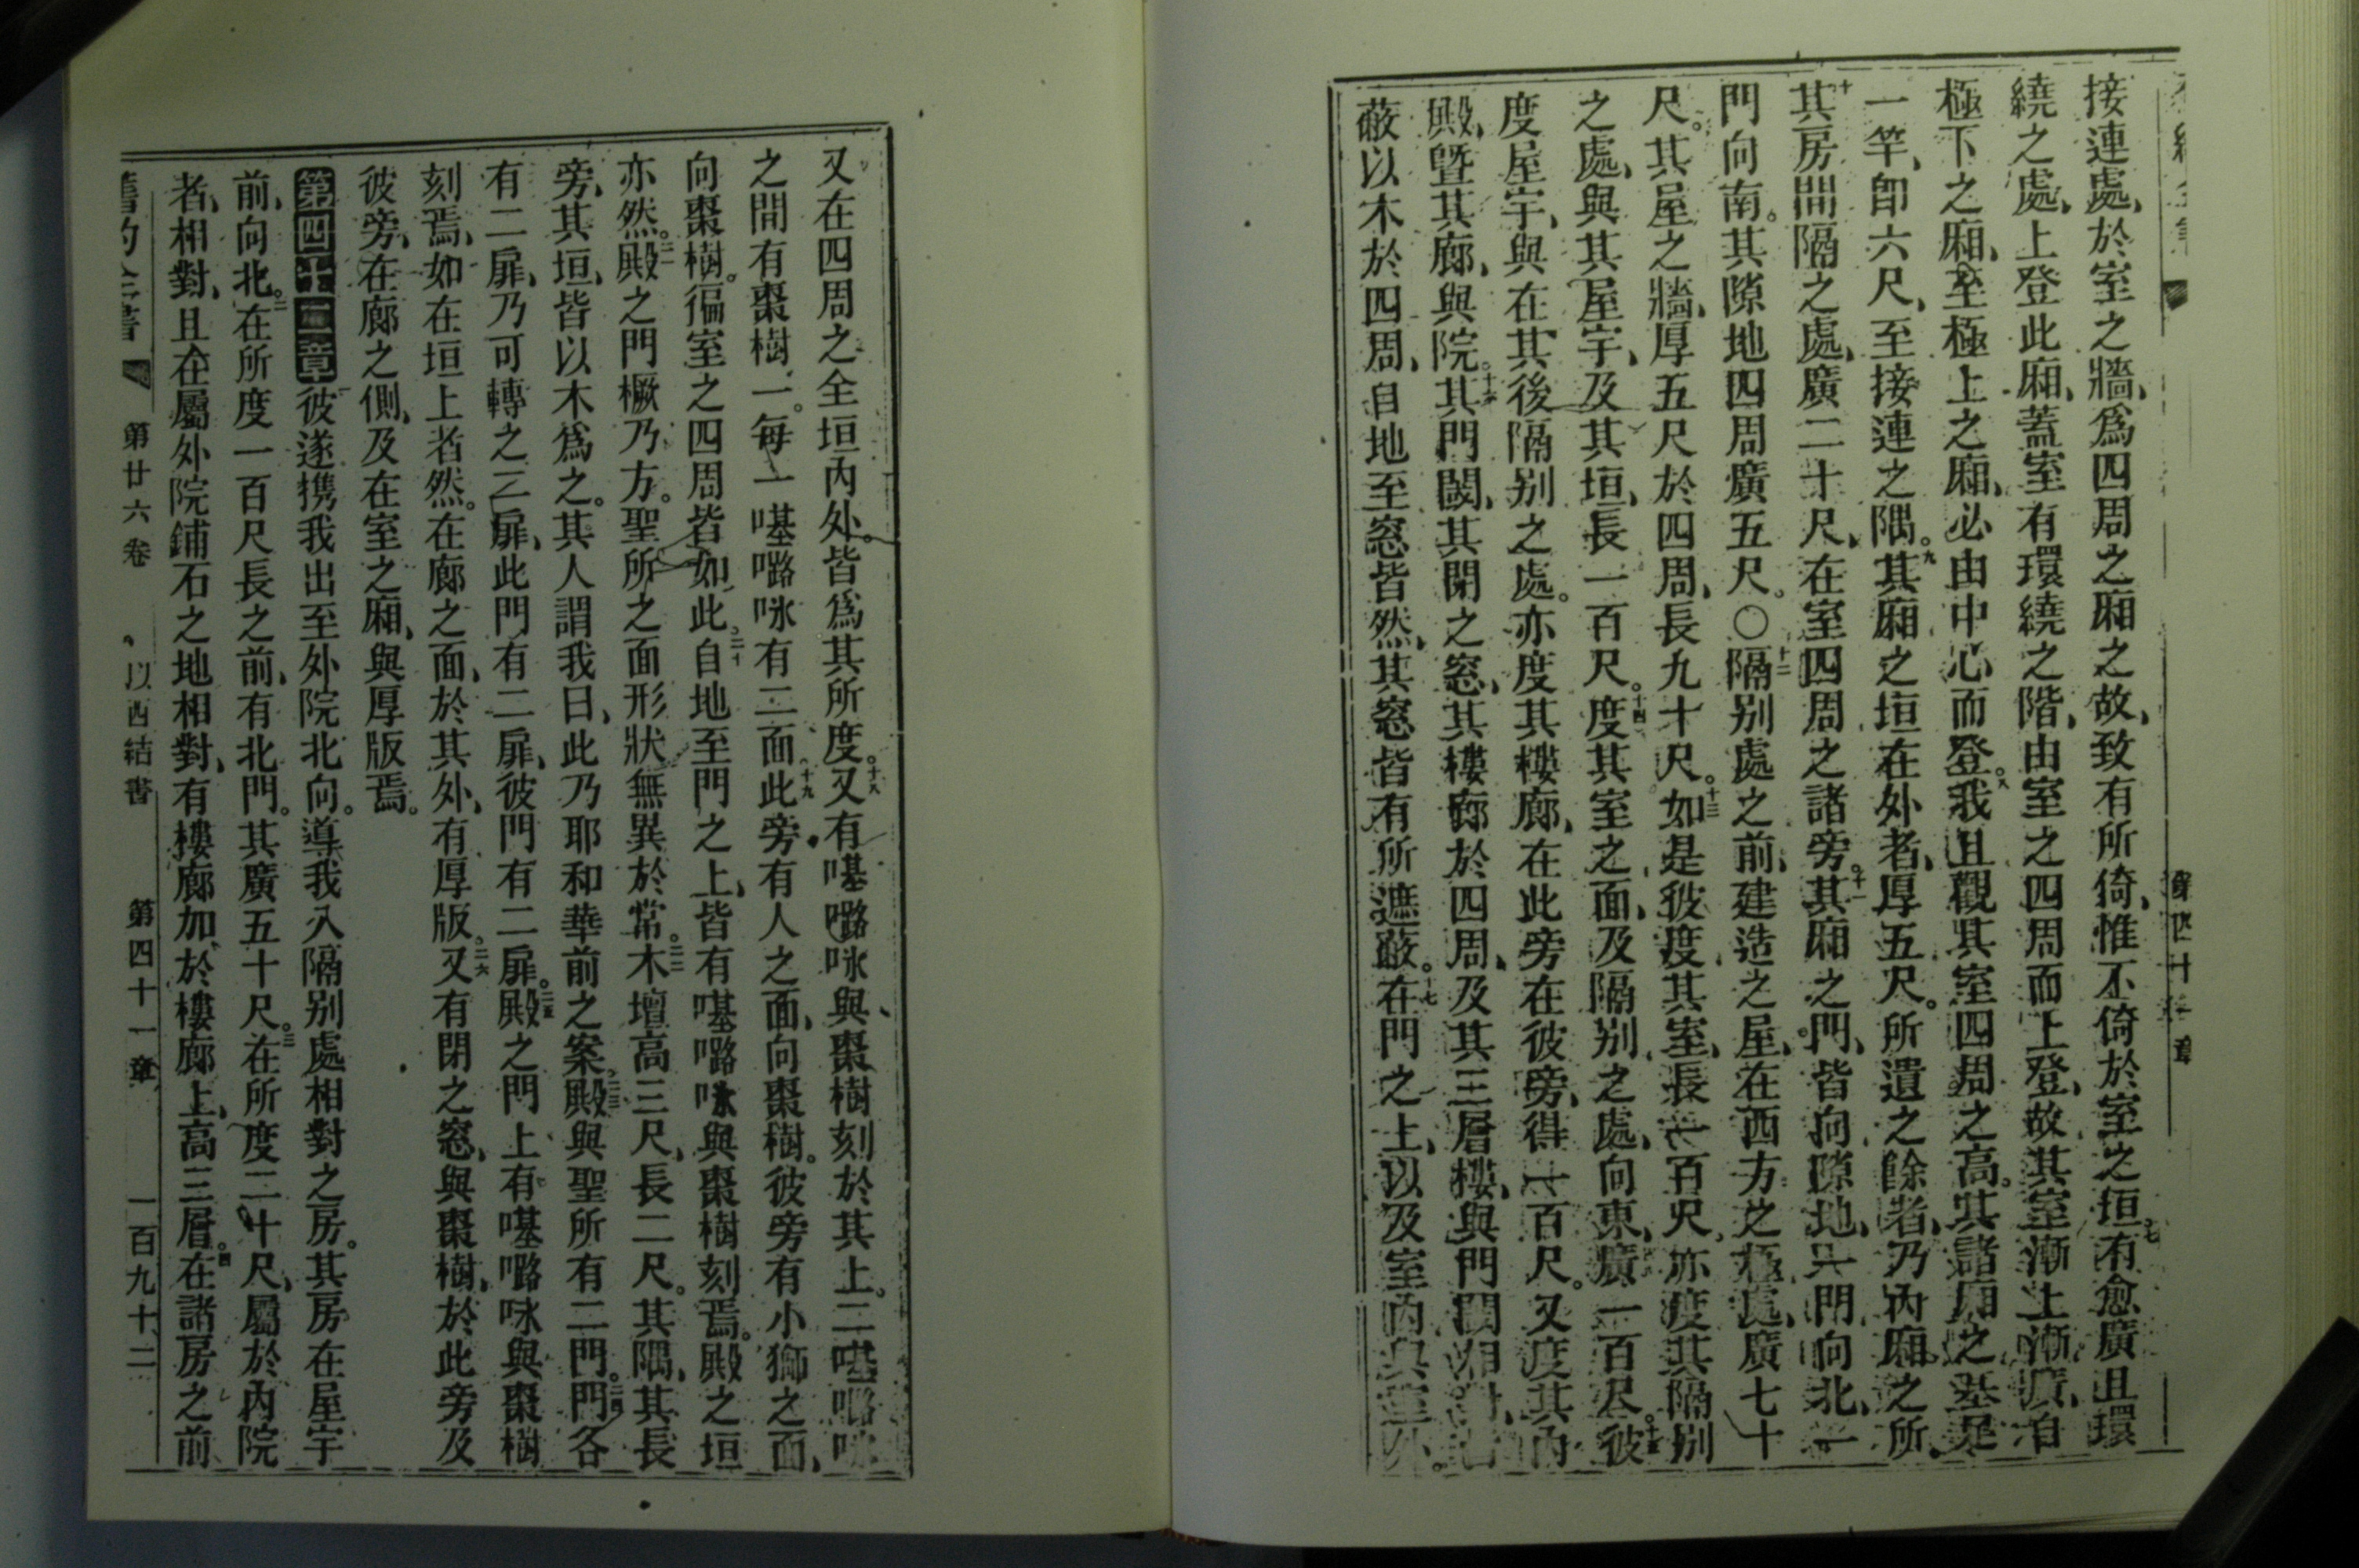 接連處、於室之牆、爲四周之廂之故、致有所倚、惟不倚於室之垣。七有愈廣且環
繞之處、上登此廂、蓋室有環繞之階、由室之四周而上登、故其室漸上漸廣、自
極下之廂、至極上之廂、必由中心而登。八我且觀其室四周之高。其諸廂之基是
一竿、卽六尺、至接連之隅。九其廂之垣在外者、厚五尺。所遺之餘者、乃內廂之所。
十其房間隔之處、廣二十尺、在室四周之諸旁。十一其廂之門、皆向隙地、一門向北、一
門向南。其隙地四周廣五尺。〇十二隔別處之前、建造之屋、在西方之極處、廣七十
尺。其屋之牆、厚五尺於四周、長九十尺。十三如是彼度其室、長一百尺、亦度其隔別
之處、與其屋宇、及其垣、長一百尺。十四度其室之面、及隔別之處、向東、廣一百尺。十五彼
度屋宇、與在其後隔別之處。亦度其樓廊、在此旁在彼旁、得一百尺。又度其內
殿、曁其廊、與院。十六其門閾、其閉之窓、其樓廊於四周、及其三層樓、與門閾相對、
蔽以木於四周、自地至窓皆然、其窓皆有所遮蔽。十七在門之上、以及室內與室外。
第四十一章
又在四周之全垣內外。皆爲其所度。十八又有𠼻嚕咏與棗樹刻於其上。二𠼻嚕咏
之間有棗樹一。每一𠼻嚕咏有二面。十九此旁有人之面、向棗樹。彼旁有小獅之面、
向棗樹。徧室之四周皆如此。二十自地至門之上、皆有𠼻嚕咏與棗樹刻焉。殿之垣
亦然。二一殿之門橛乃方。聖所之面形狀無異於常。二二木壇高三尺、長二尺。其隅、其長
旁、其垣、皆以木爲之。其人謂我曰、此乃耶和華前之案。二三殿與聖所有二門。二四門各
有二扉、乃可轉之二扉、此門有二扉、彼門有二扉。二五殿之門上有𠼻嚕咏與棗樹
刻焉、如在垣上者然。在廊之面、於其外、有厚版。二六又有閉之窓、與棗樹、於此旁及
彼旁、在廊之側、及在室之廂、與厚版焉。
第四十二章彼遂攜我出至外院北向。導我入隔別處相對之房。其房在屋宇
前、向北。二在所度一百尺長之前、有北門。其廣五十尺。三在所度二十尺、屬於內院
者、相對、且在屬外院鋪石之地相對、有樓廊加於樓廊上、高三層。四在諸房之前
舊約全書 第廿六卷 以西結書 第四十一章 一百九十二